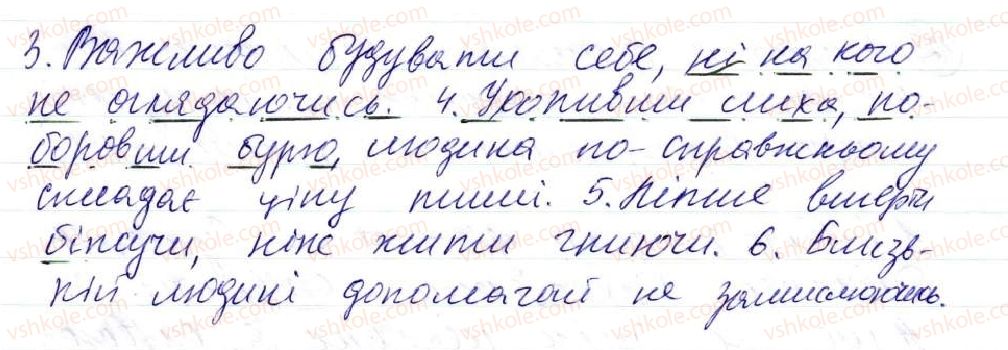 3. Важливо будувати себе, ні на кого
не оглядаючись. 4. Ухопивши лиха, по-
боровши бурю, людина по-справжньому
складає ціну тиші. 5. Ліпше вмерти
біжучи, ніж жити гниючи. 6. Близь-
кій людині допомагай не замислюючись.